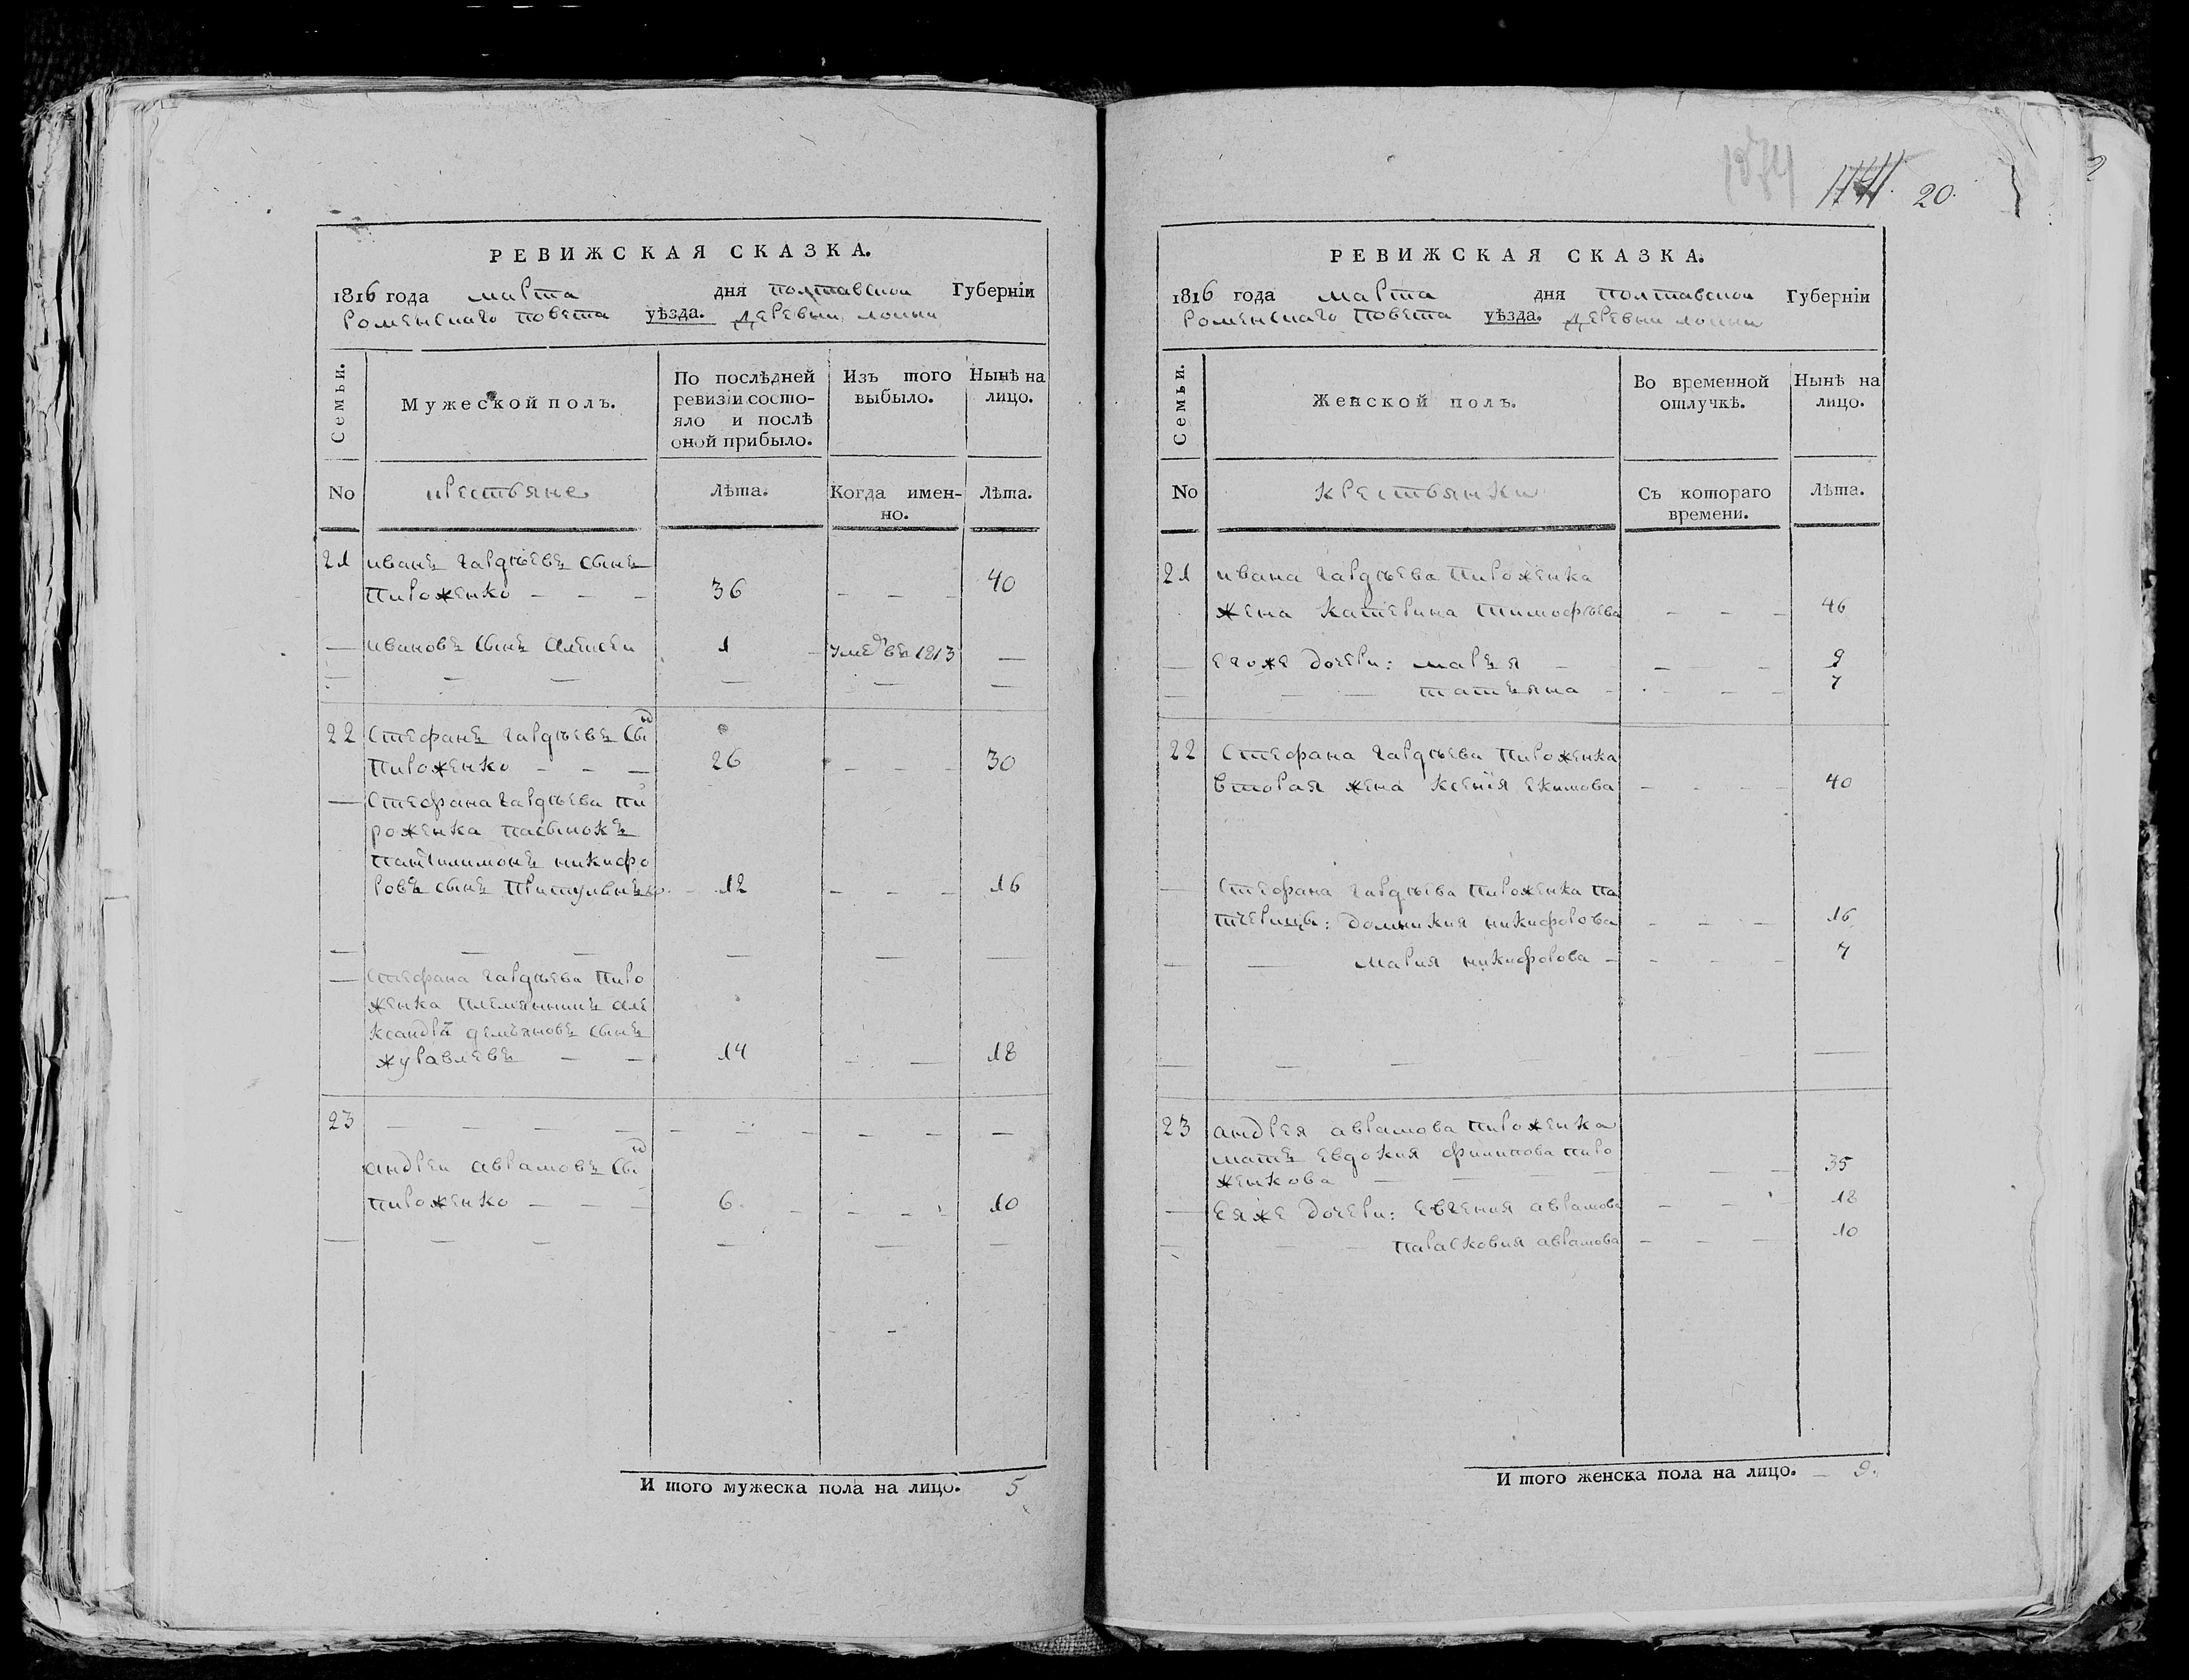 1741. 20.
РЕВИЖСКАЯ СКАЗКА.
1816 года марта дня полтавской Губерніи
роменского повета уѣзда. деревни
Семьи.
Мужеской полъ.
По послѣдней ревизіи состояло и послѣ оной прибыло.
Изъ того выбыло.
Нынѣ на лицо.
No крестьяне Лѣта. Когда именно. Лѣта.
21 иванъ гардѣевъ сынъ
пироженко — — — 36 — — — 40
— ивановъ сынъ алексеи 1 умеръ въ 1813 —
— — — — — —
22 Стефанъ гардѣевъ сынъ
пироженко — — — 26 — — — 30
— Стефана гардѣева пи
роженка пасынокъ
пантилимонъ никифо
ровъ сынъ — 12 — — — 16
— — — — — —
— Стефана гардѣева пиро
женка племянникъ але
ксандръ демьяновъ сынъ
журавлевъ — — 14 — — 18
23 — — — — — — — — — —
андреи аврамовъ сынъ
пироженко — — — 6 — — — 10
— — — — — —
И того мужеска пола на лицо. 5
РЕВИЖСКАЯ СКАЗКА.
1816 года марта дня полтавской Губерніи
роменского повета уѣзда. деревни
Семьи.
Женской полъ.
Во временной отлучкѣ.
Нынѣ на лицо.
No крестьянки Съ котораго времени. Лѣта.
21 ивана гардѣева пироженка
жена катерина тимофѣева — — — 46
— егоже дочери: маръя — — — 9
— — — татъяна — — — 7
22 Стефана гардѣева пироженка
вторая жена ксенїя екимова — — — 40
— Стефана гардѣева пироженка па
тчерицы: домникия никифорова — — — 16
— — мария никифорова — — — 7
— — — — — — —
23 андрея аврамова пироженка
матъ евдокия филипова пиро
женкова — — — — — 35
— еяже дочери: евгения аврамова — — 18
— — — параСковия аврамова — — — 10
И того женска пола на лицо. — 9.